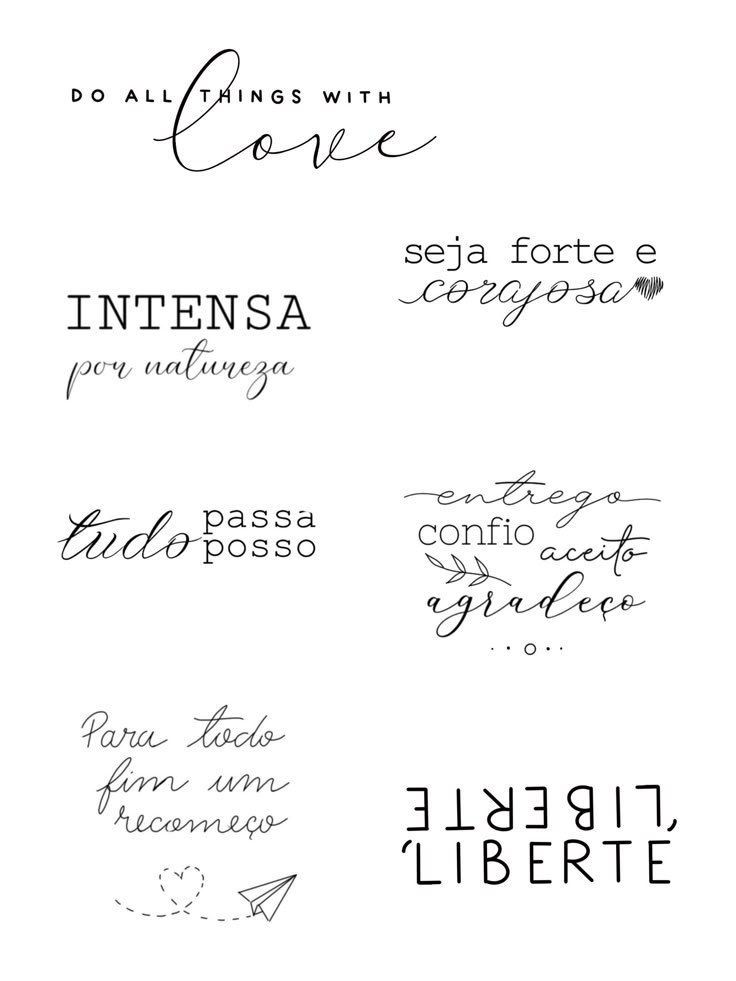 DO ALL THINGS WITH
love
seja forte e
corajosa
INTENSA
por natureza
tudo passa
posso
entrego
confio
aceito
agradeço
Para todo
fim um
recomeço
'LIBERTE
'LIBERTE